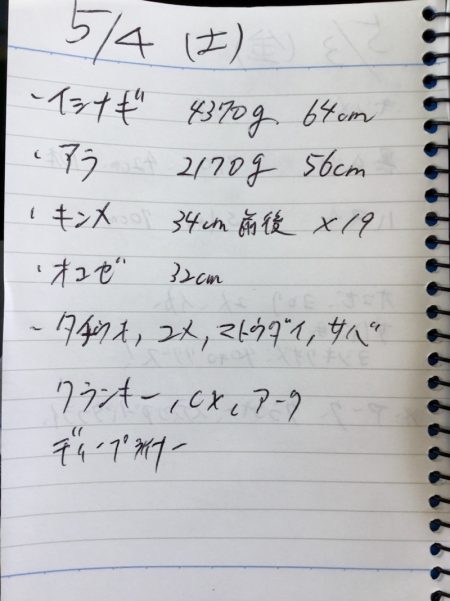 5/4 (土)
・イシナギ 4370g 64cm
・アラ 2170g 56cm
・キンメ 34cm前後 ×19
・オコゼ 32cm
・タチウオ, ユメ, マトウダイ, サバ
クランキー, CX, アーク
ディープライナー